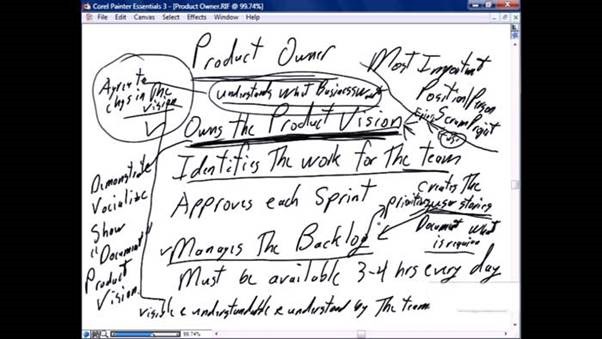 Corel Painter Essentials 3 - [Product Owner.RIF @ 99.74%]
File Edit Canvas Select Effects Window Help
Product Owner
Most Important
Position/Person
Scrum Project
understands what Business wants
Agree to
chgs in The
vision
Owns The Product Vision
Identifies The work for The team
Approves each Sprint
creates The
user stories
Manages The Backlog
Document what
is required
Must be available 3-4 hrs every day
Demonstrate
Vocialize
Show
"Document"
Product
Vision
visible & understandable & understand by The team
99.74%